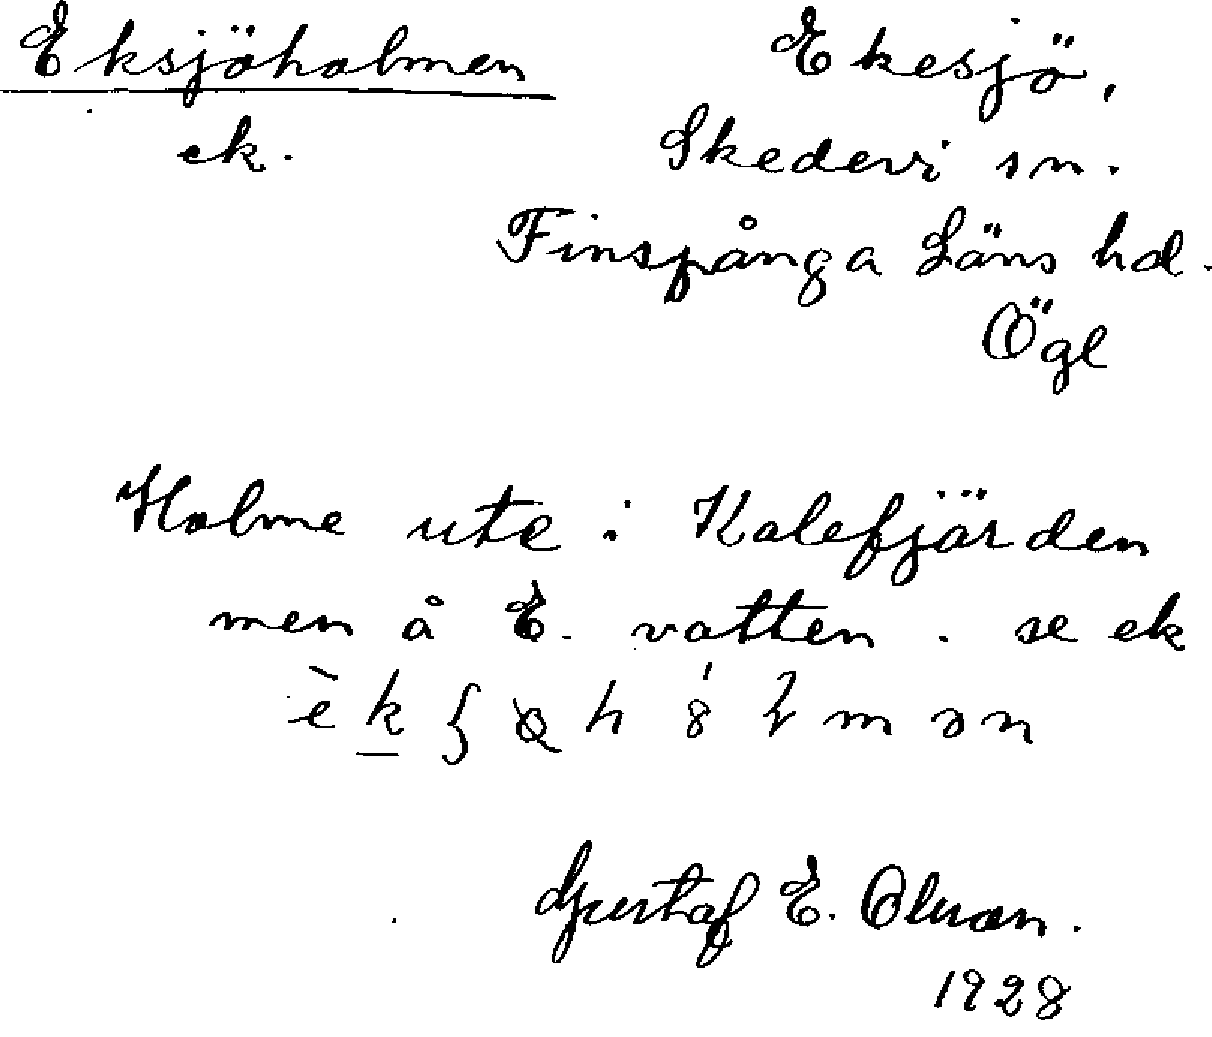 Eksjöholmen
ek.
Ekesjö,
Skedevi sn.
Finspånga Läns hd.
Ögl
Holme ute i Kalefjärden
men å E. vatten. se ek
Gustaf E. Olson.
1928